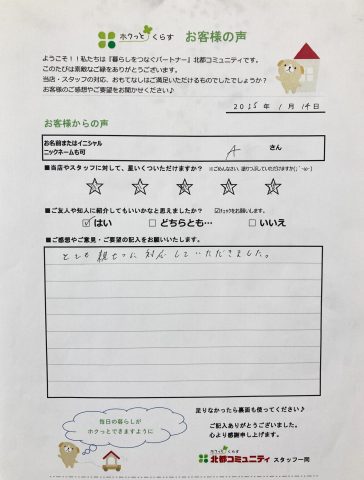 ホクっと くらす お客様の声
ようこそ!!私たちは『暮らしをつなぐパートナー』北都コミュニティです。
このたびは素敵なご縁をありがとうございます。
当店・スタッフの対応、おもてなしはご満足いただけるものでしたでしょうか?
お客様のご感想やご要望をお聞かせください♪
2025年 1月 14日
お客様からの声
お名前またはイニシャル
ニックネームも可
A さん
■当店やスタッフに対して、星いくついただけますか? ※ごめんなさい、塗りつぶしていただけますか(;´・ω・)
■ご友人や知人に紹介してもいいかなと思えましたか? ☑チェックをお願いします。
☑はい □どちらとも… □いいえ
■ご感想やご意見・ご要望の記入をお願いいたします。
とても親切に対応していただきました。
足りなかったら裏面も使ってください♪
毎日の暮らしが
ホクっとできますように
ご記入ありがとうございました。
心より感謝申し上げます。
ホクっと くらす
北都コミュニティ スタッフ一同